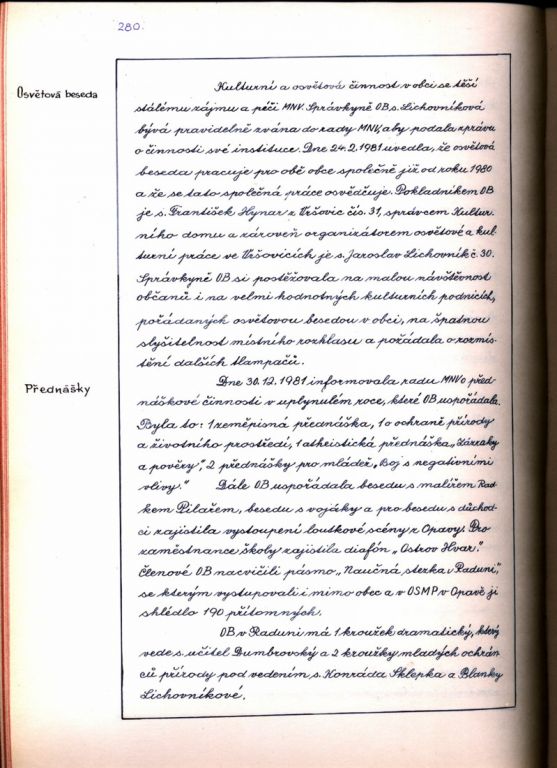 280.
Osvětová beseda
Kulturní a osvětová činnost v obci se těší
stálému zájmu a péči MNV. Správkyně OB s. Lichovníková
bývá pravidelně zvána do rady MNV, aby podala zprávu
o činnosti své instituce. Dne 24.2. 1981 uvedla, že osvětová
beseda pracuje pro obě obce společně již od roku 1980
a že se tato společná práce osvědčuje. Pokladníkem OB
je s. František Hynar z Vršovic čís. 31, správcem Kultur-
ního domu a zároveň organizátorem osvětové a kul-
turní práce ve Vršovicích je s. Jaroslav Lichovník č. 30.
Správkyně OB si postěžovala na malou návštěvnost
občanů i na velmi hodnotných kulturních podnicích,
pořádaných osvětovou besedou v obci, na špatnou
slyšitelnost místního rozhlasu a požádala o rozmís-
tění dalších tlampačů.
Přednášky
Dne 30.12. 1981 informovala radu MNV o před-
náškové činnosti v uplynulém roce, které OB uspořádala.
Bylo to: 1 zeměpisná přednáška, 1 o ochraně přírody
a životního prostředí, 1 atheistická přednáška „Zázraky
a pověry", 2 přednášky pro mládež „Boj s negativními
vlivy." Dále OB uspořádala besedu s malířem Rad-
kem Pilařem, besedu s vojáky a pro besedu s důchod-
ci zajistila vystoupení loutkové scény z Opavy. Pro
zaměstnance školy zajistila diafón „Ostrov Hvar."
Členové OB nacvičili pásmo „Naučná stezka v Raduni",
se kterým vystupovali i mimo obec a v OSMP v Opavě ji
shlédlo 190 přítomných.
OB v Raduni má 1 kroužek dramatický, který
vede s. učitel Dumbrovský a 2 kroužky mladých ochrán-
ců přírody pod vedením s. Konráda Sklepka a Blanky
Lichovníkové.